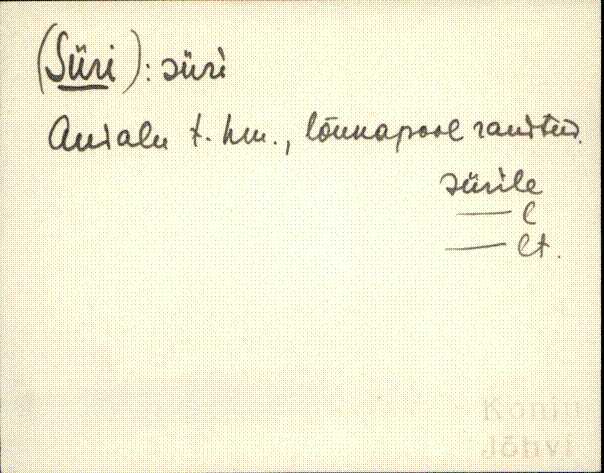 (Süri): süri
Audalu t. hm., lõunapool raudteed.
sürile
— l
— lt.
Konin
Jõhvi